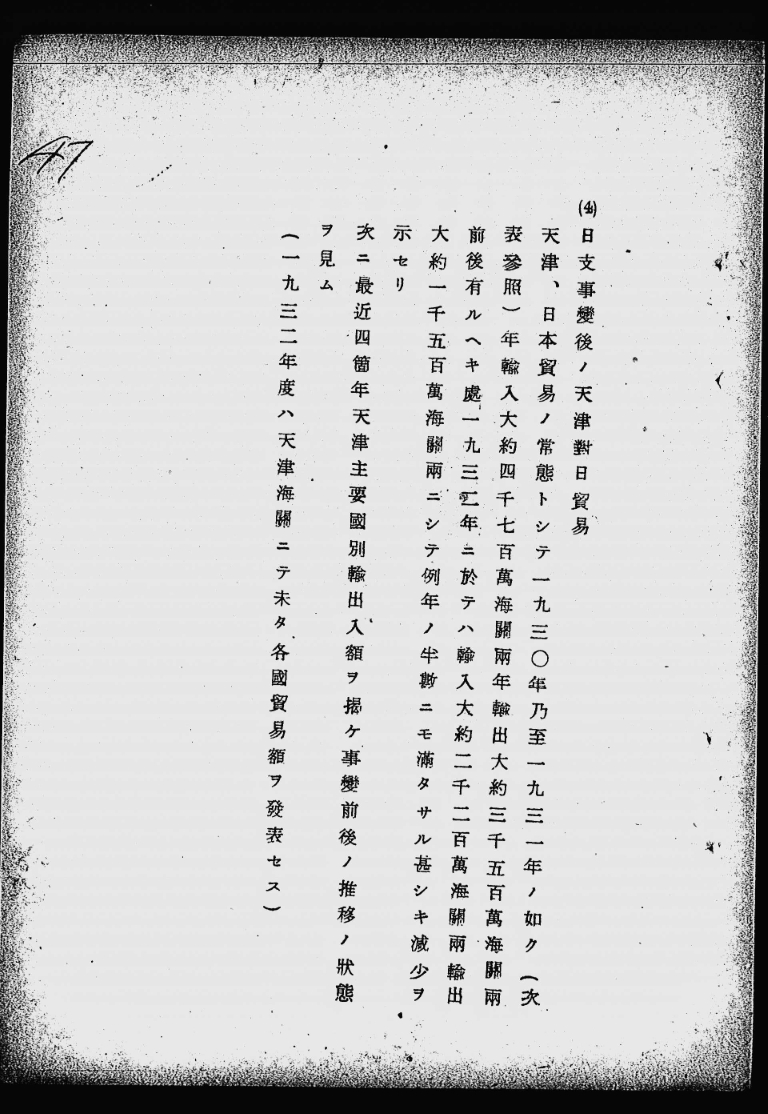 47
(4)日支事變後ノ天津對日貿易
天津、日本貿易ノ常態トシテ一九三〇年乃至一九三一年ノ如ク(次
表參照)年輸入大約四千七百萬海關兩年輸出大約三千五百萬海關兩
前後有ルヘキ處一九三二年ニ於テハ輸入大約二千二百萬海關兩輸出
大約一千五百萬海關兩ニシテ例年ノ半數ニモ滿タサル甚シキ減少ヲ
示セリ
次ニ最近四箇年天津主要國別輸出入額ヲ揭ケ事變前後ノ推移ノ狀態
ヲ見ム
(一九三二年度ハ天津海關ニテ未タ各國貿易額ヲ發表セス)